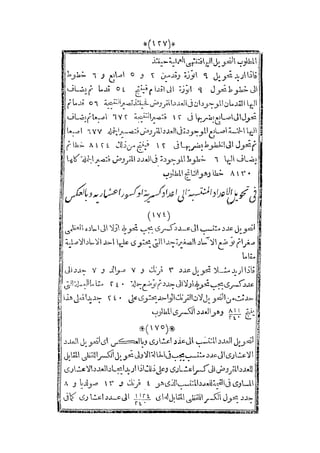 *(١٢٧)*
المطلوب التحويل اليها فتنتهى العملية حينئذ
فاذا اريد تحويل ٩ انوزة وقدمين ٢ و ٥ اصابع و ٦ خطوط
الى خطوط تحول ٩ انوزة الى اقدام فينتج ٥٤ قدما ثم يضاف
اليها القدمان الموجودان فى العدد المفروض فتصير النتيجة ٥٦ قدما ثم
تحول الى اصابع بضربها فى ١٢ فتصير النتيجة ٦٧٢ اصبعا ثم يضاف
اليها الخمسة اصابع الموجودة فى العدد المفروض فتصير الجملة ٦٧٧ اصبعا
ثم تحول الى الخطوط بضربها فى ١٢ فينتج من ذلك ٨١٢٤ خطا ثم
يضاف اليها ٦ خطوط الموجودة فى العدد المفروض فتصير الجملة كلها
٨١٣٠ خطا وهو الناتج المطلوب
فى تحويل الاعداد المنتسبة الى اعداد كسرية او كسور اعشارية وبالعكس
(١٧٤)
لتحويل عدد منتسب الى عدد كسرى يجب تحويله اولا الى احاده العظمى
صغرا ثم توضع الآحاد الصغيرة جدا التى يحتوى عليها احد الآحاد الاصلية
مقاما
فاذا اريد مثلا تحويل عدد ٣ فرنك و ٧ صوالد و ٧ جدد الى
عدد كسرى يجب تحويله اولا الى جدد ثم توضع جملة ٢٤٠ مقاما للجملة التى
حدثت من التحويل لان الفرنك الواحد يحتوى على ٢٤٠ جديدا فعلى هذا
ينتج ٨١١/٢٤٠ وهو العدد الكسرى المطلوب
*(١٧٥)*
لتحويل العدد المنتسب الى عدد اعشارى وبالعكس اى لتحويل العدد
الاعشارى الى عدد منتسب يجب فى الحالة الاولى تحويل الكسر اللفظى المقابل
للعدد المفروض الى كسر اعشارى وعلى ذلك فاذا اريد ايجاد العدد الاعشارى
المساوى فى القيمة للعدد المنتسب الذى هو ٤ فرنك و ١٣ صولديا و ٨
جدد يحول الكسر اللفظى المقابل له اى ١١٢٤/٢٤٠ الى عدد اعشارى كما فى